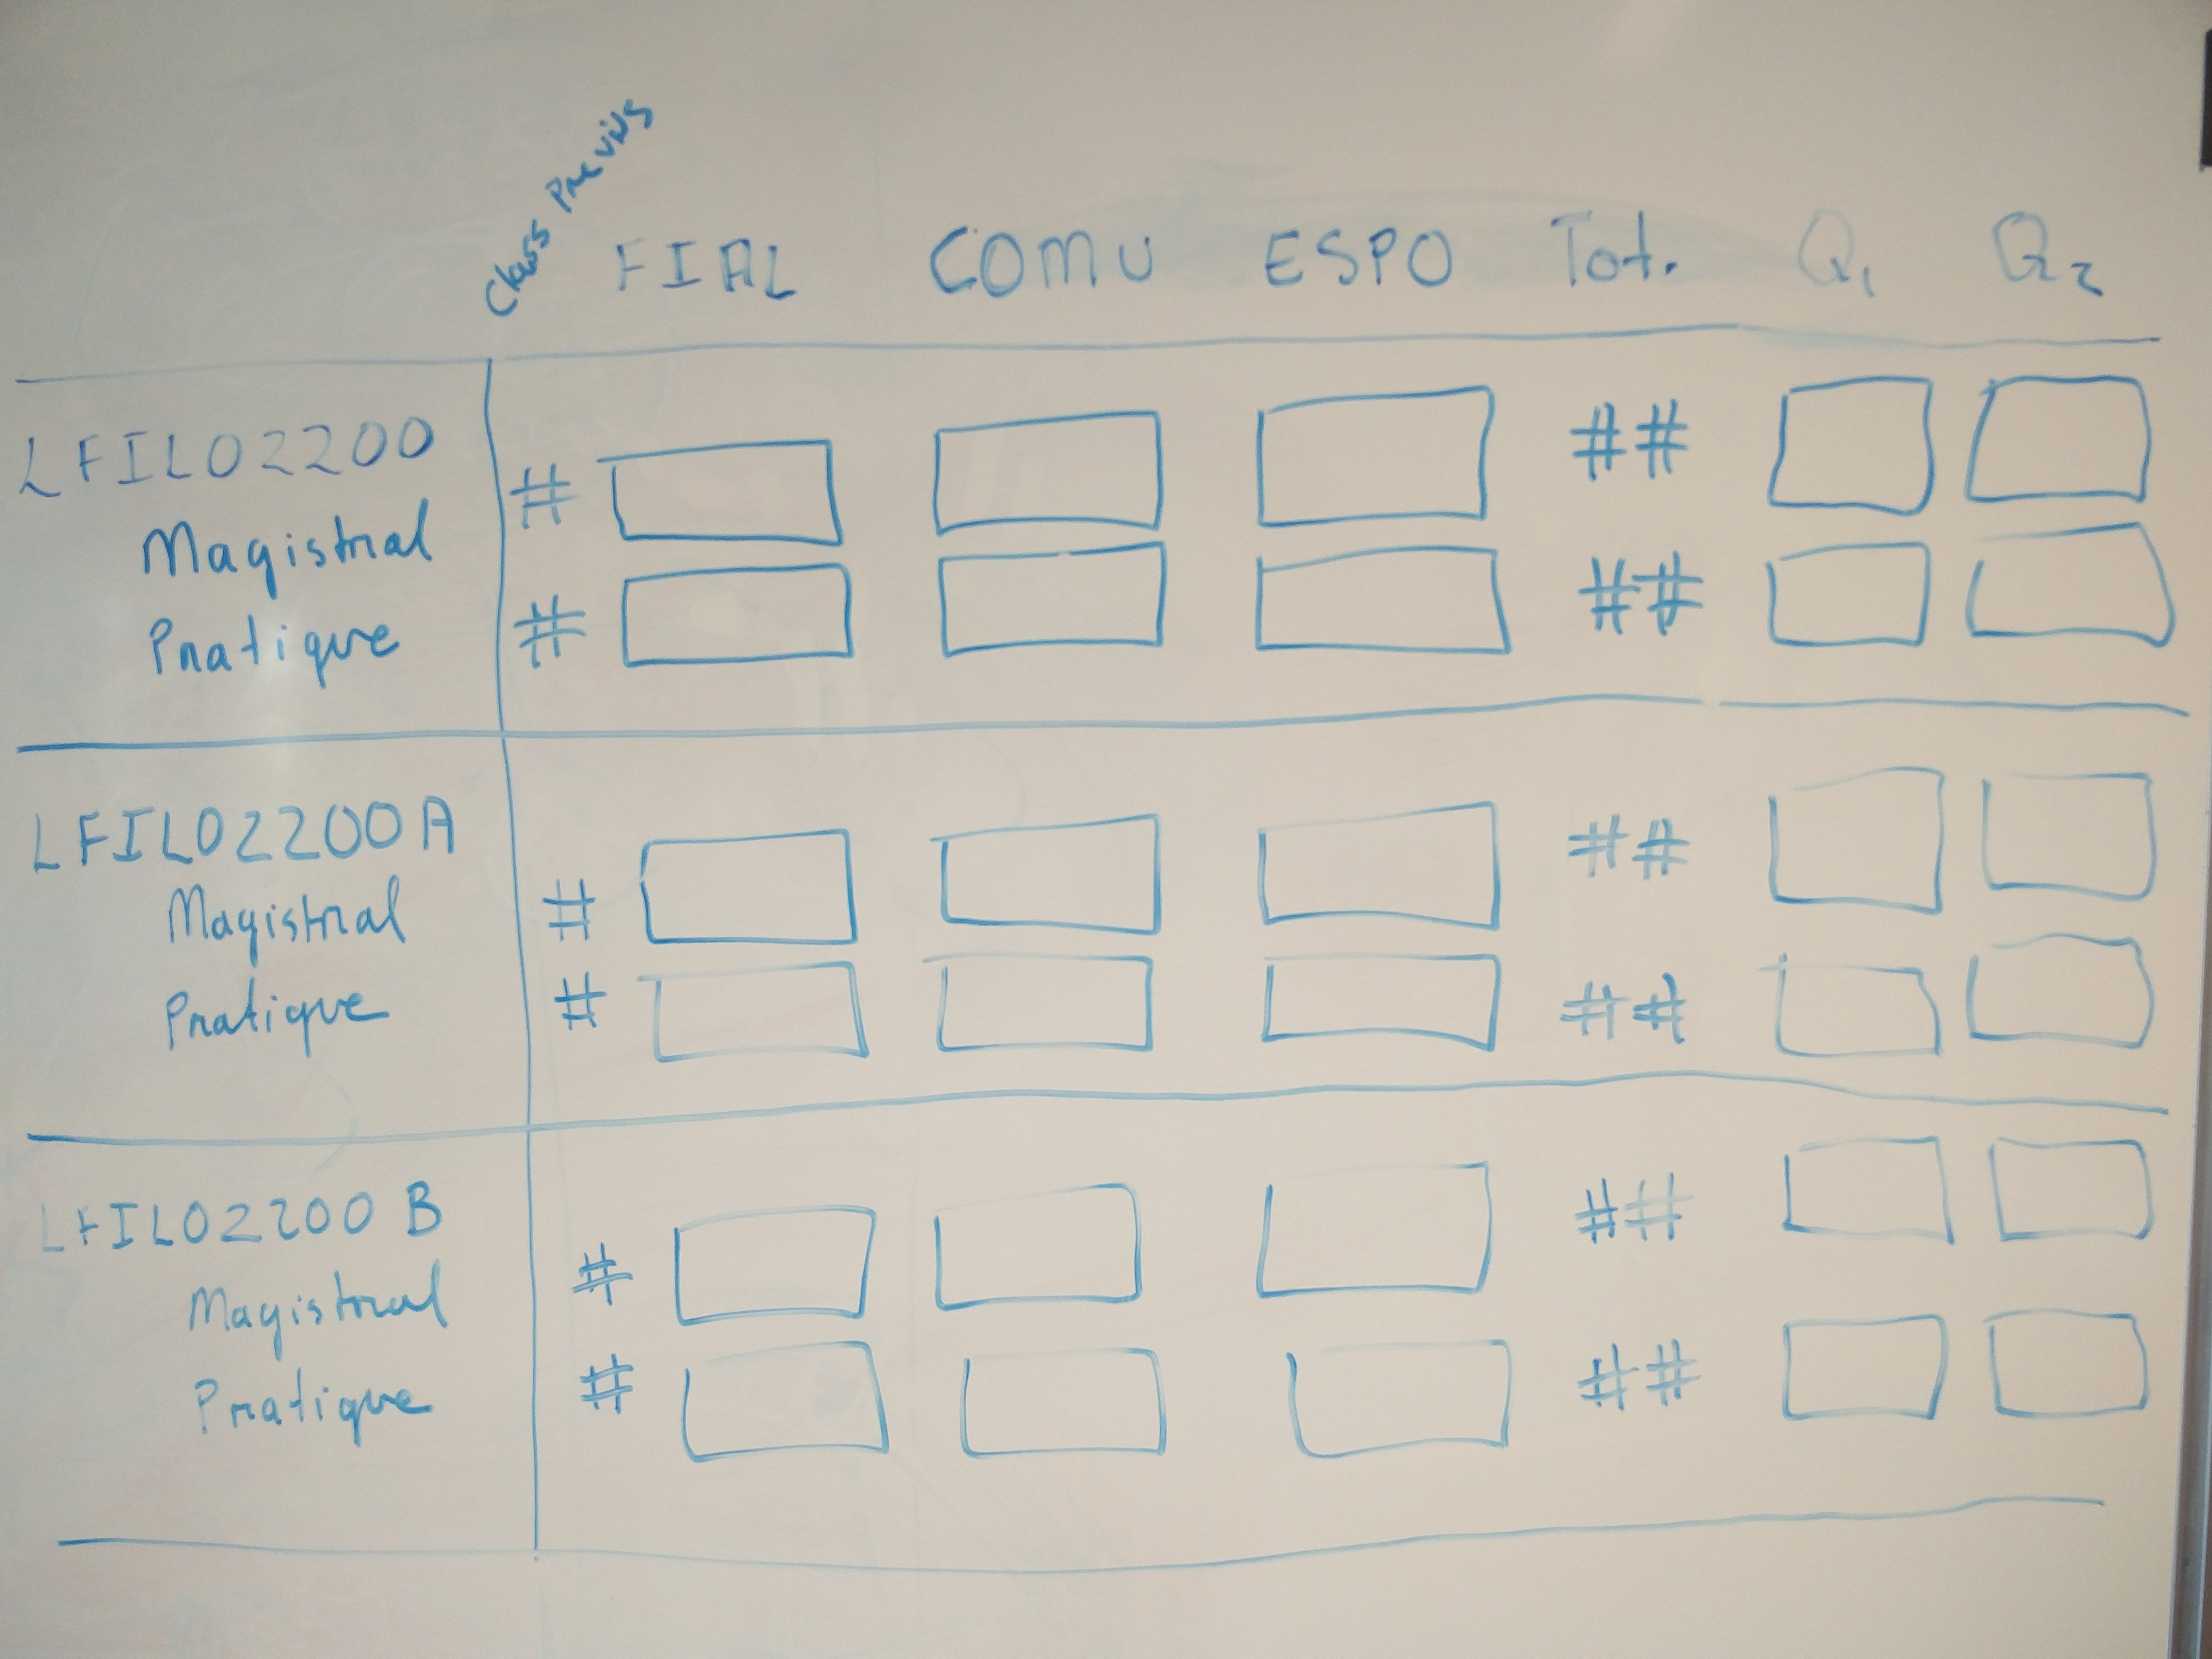 Class Previs FIAL COMU ESPO Tot. Q1 Q2
LFILO2200
# ##
Magistral
Pratique # ##
LFILO2200A
Magistral # ##
Pratique # ##
LFILO2200 B
Magistral # ##
Pratique # ##